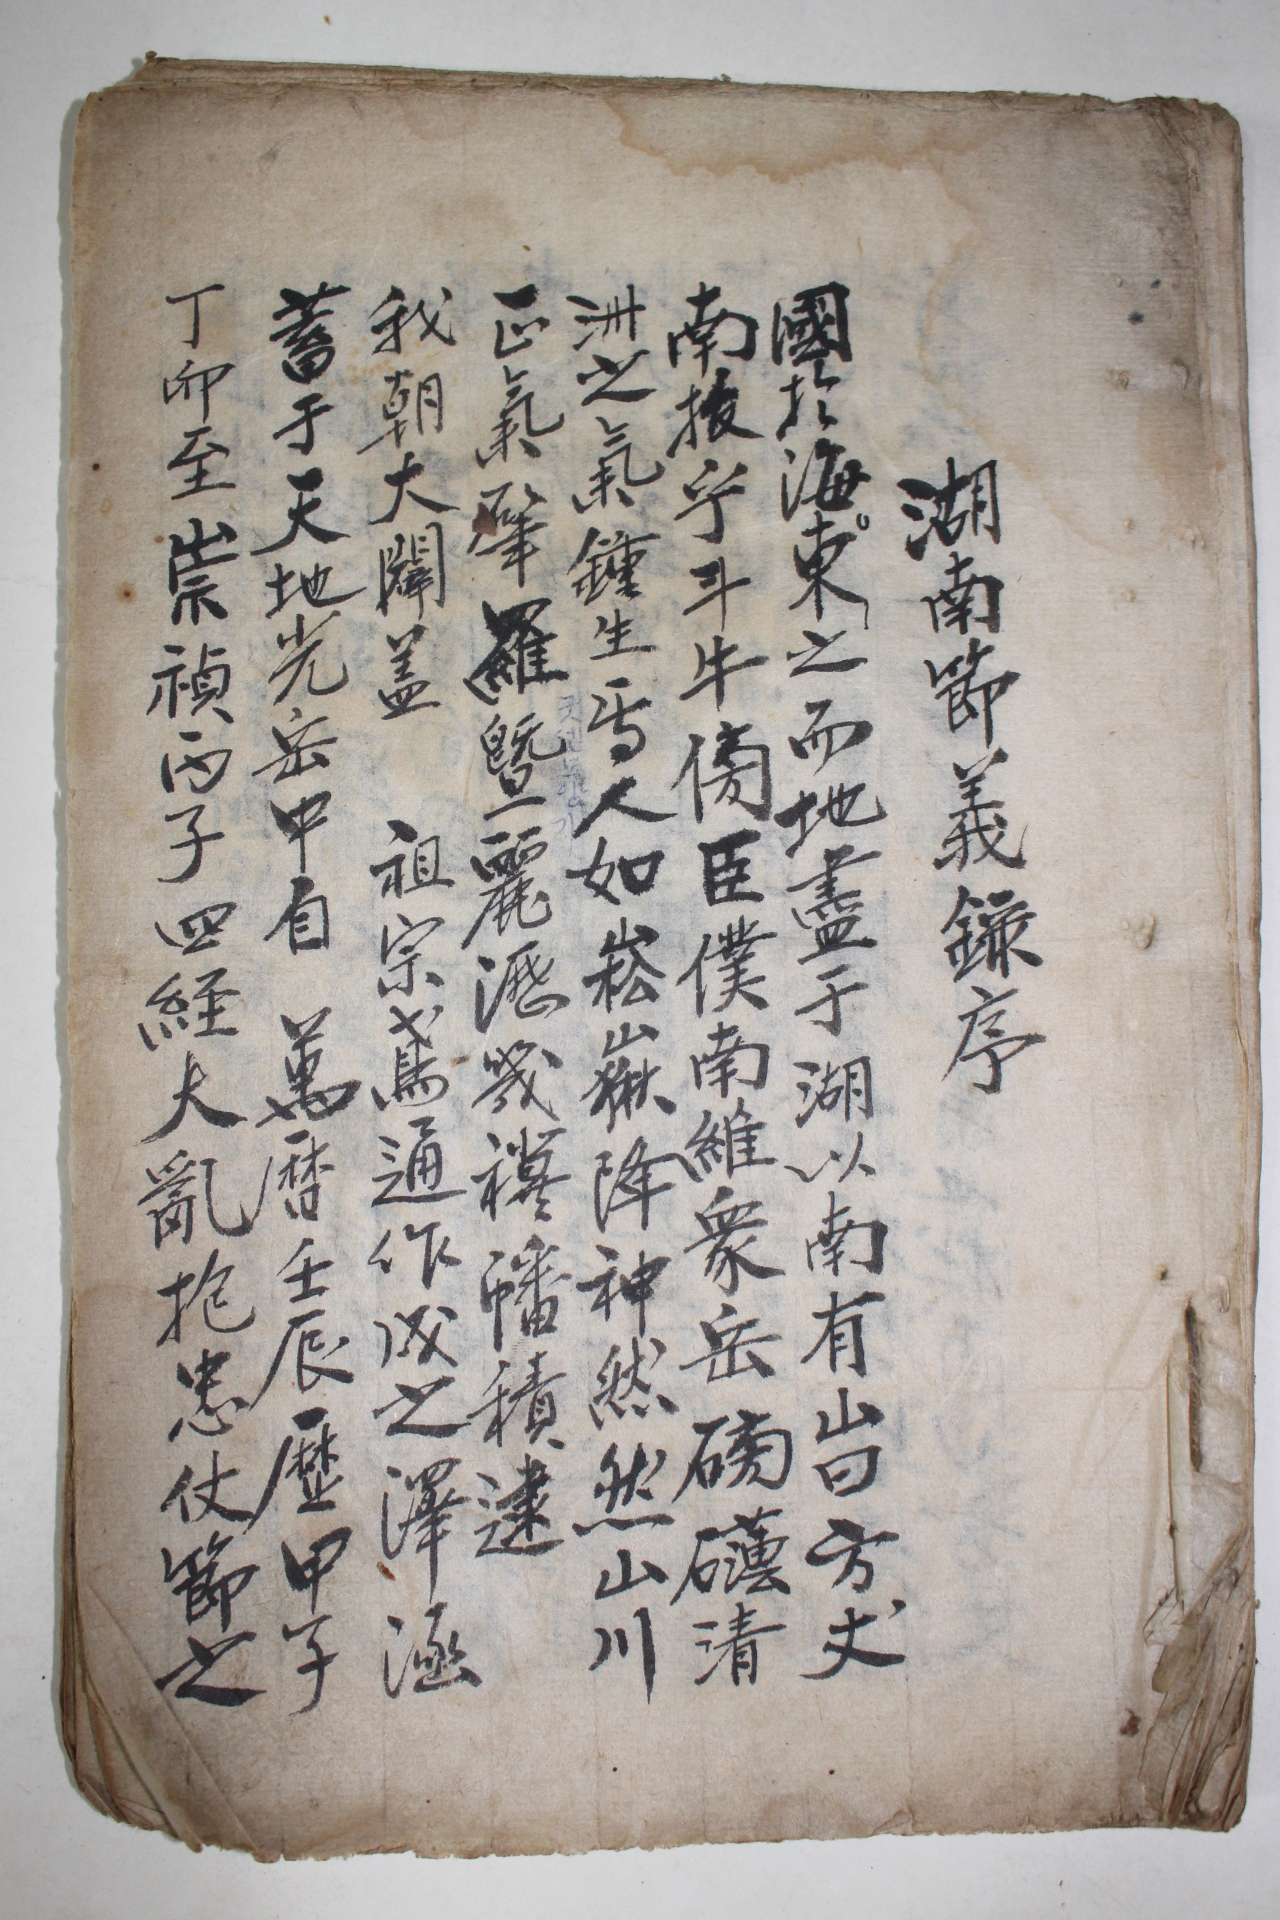 湖南節義錄序
國於海東之而地盡于湖以南有山曰方丈
南掖乎斗牛傍臣僕南維衆岳磅礴清
淑之氣鍾生焉人如崧嶽降神然然山川
正氣肇羅曁麗歷幾禩幡積逮
我朝大闡盖 祖宗鳶通作成之澤涵
蓄于天地光岳中自 萬曆壬辰歷甲子
丁卯至崇禎丙子四經大亂抱忠仗節之